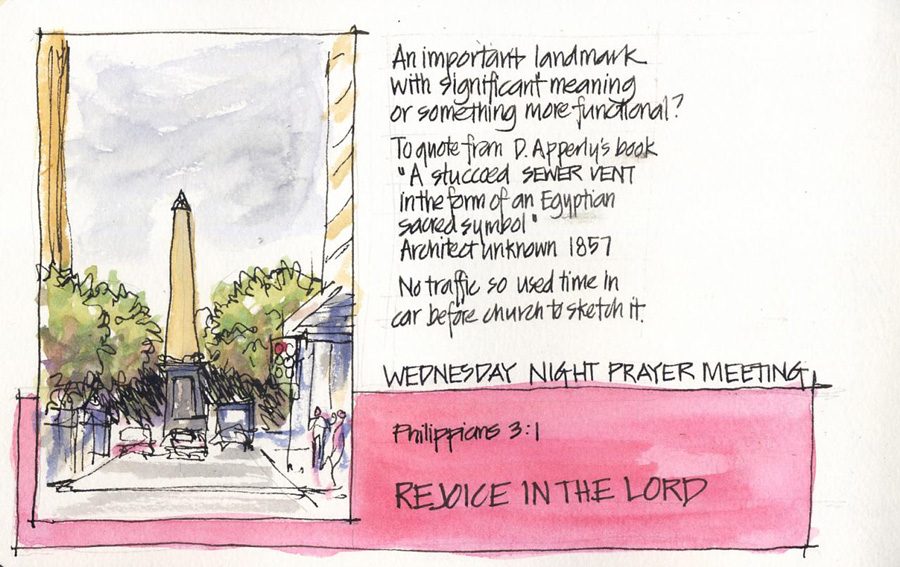 An important landmark
with significant meaning
or something more functional?
To quote from D. Apperly's book
"A stuccoed SEWER VENT
in the form of an Egyptian
sacred symbol"
Architect unknown 1857
No traffic so used time in
car before church to sketch it.
WEDNESDAY NIGHT PRAYER MEETING
Philippians 3:1
REJOICE IN THE LORD